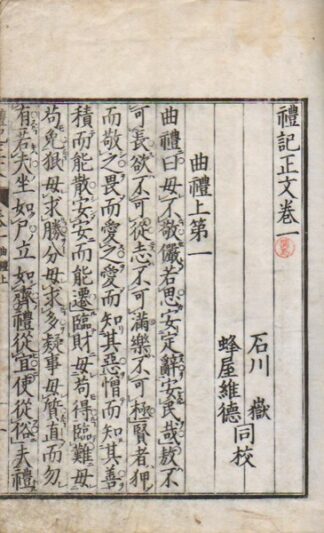 禮記正文卷一
石川嶽
蜂屋維德同校
曲禮上第一
曲禮曰毋不敬儼若思安定辭安民哉敖不
可長欲不可從志不可滿樂不可極賢者狎
而敬之畏而愛之愛而知其惡憎而知其善
積而能散安安而能遷臨財毋苟得臨難毋
苟免狠毋求勝分毋求多疑事毋質直而勿
有若夫坐如尸立如齊禮從宜使從俗夫禮
曲禮上